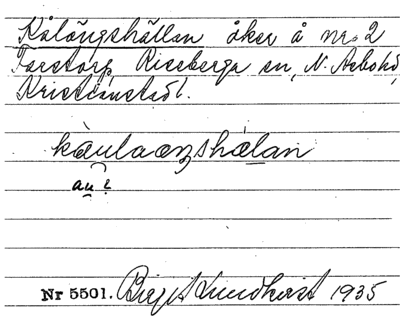 Kålängshällan åker å nr 2
Farstorp Riseberga sn, N. Åsbo hd,
Kristianstad l.
kàulaæŋshàlan
au?
Nr 5501. Birgit Lundkvist 1935